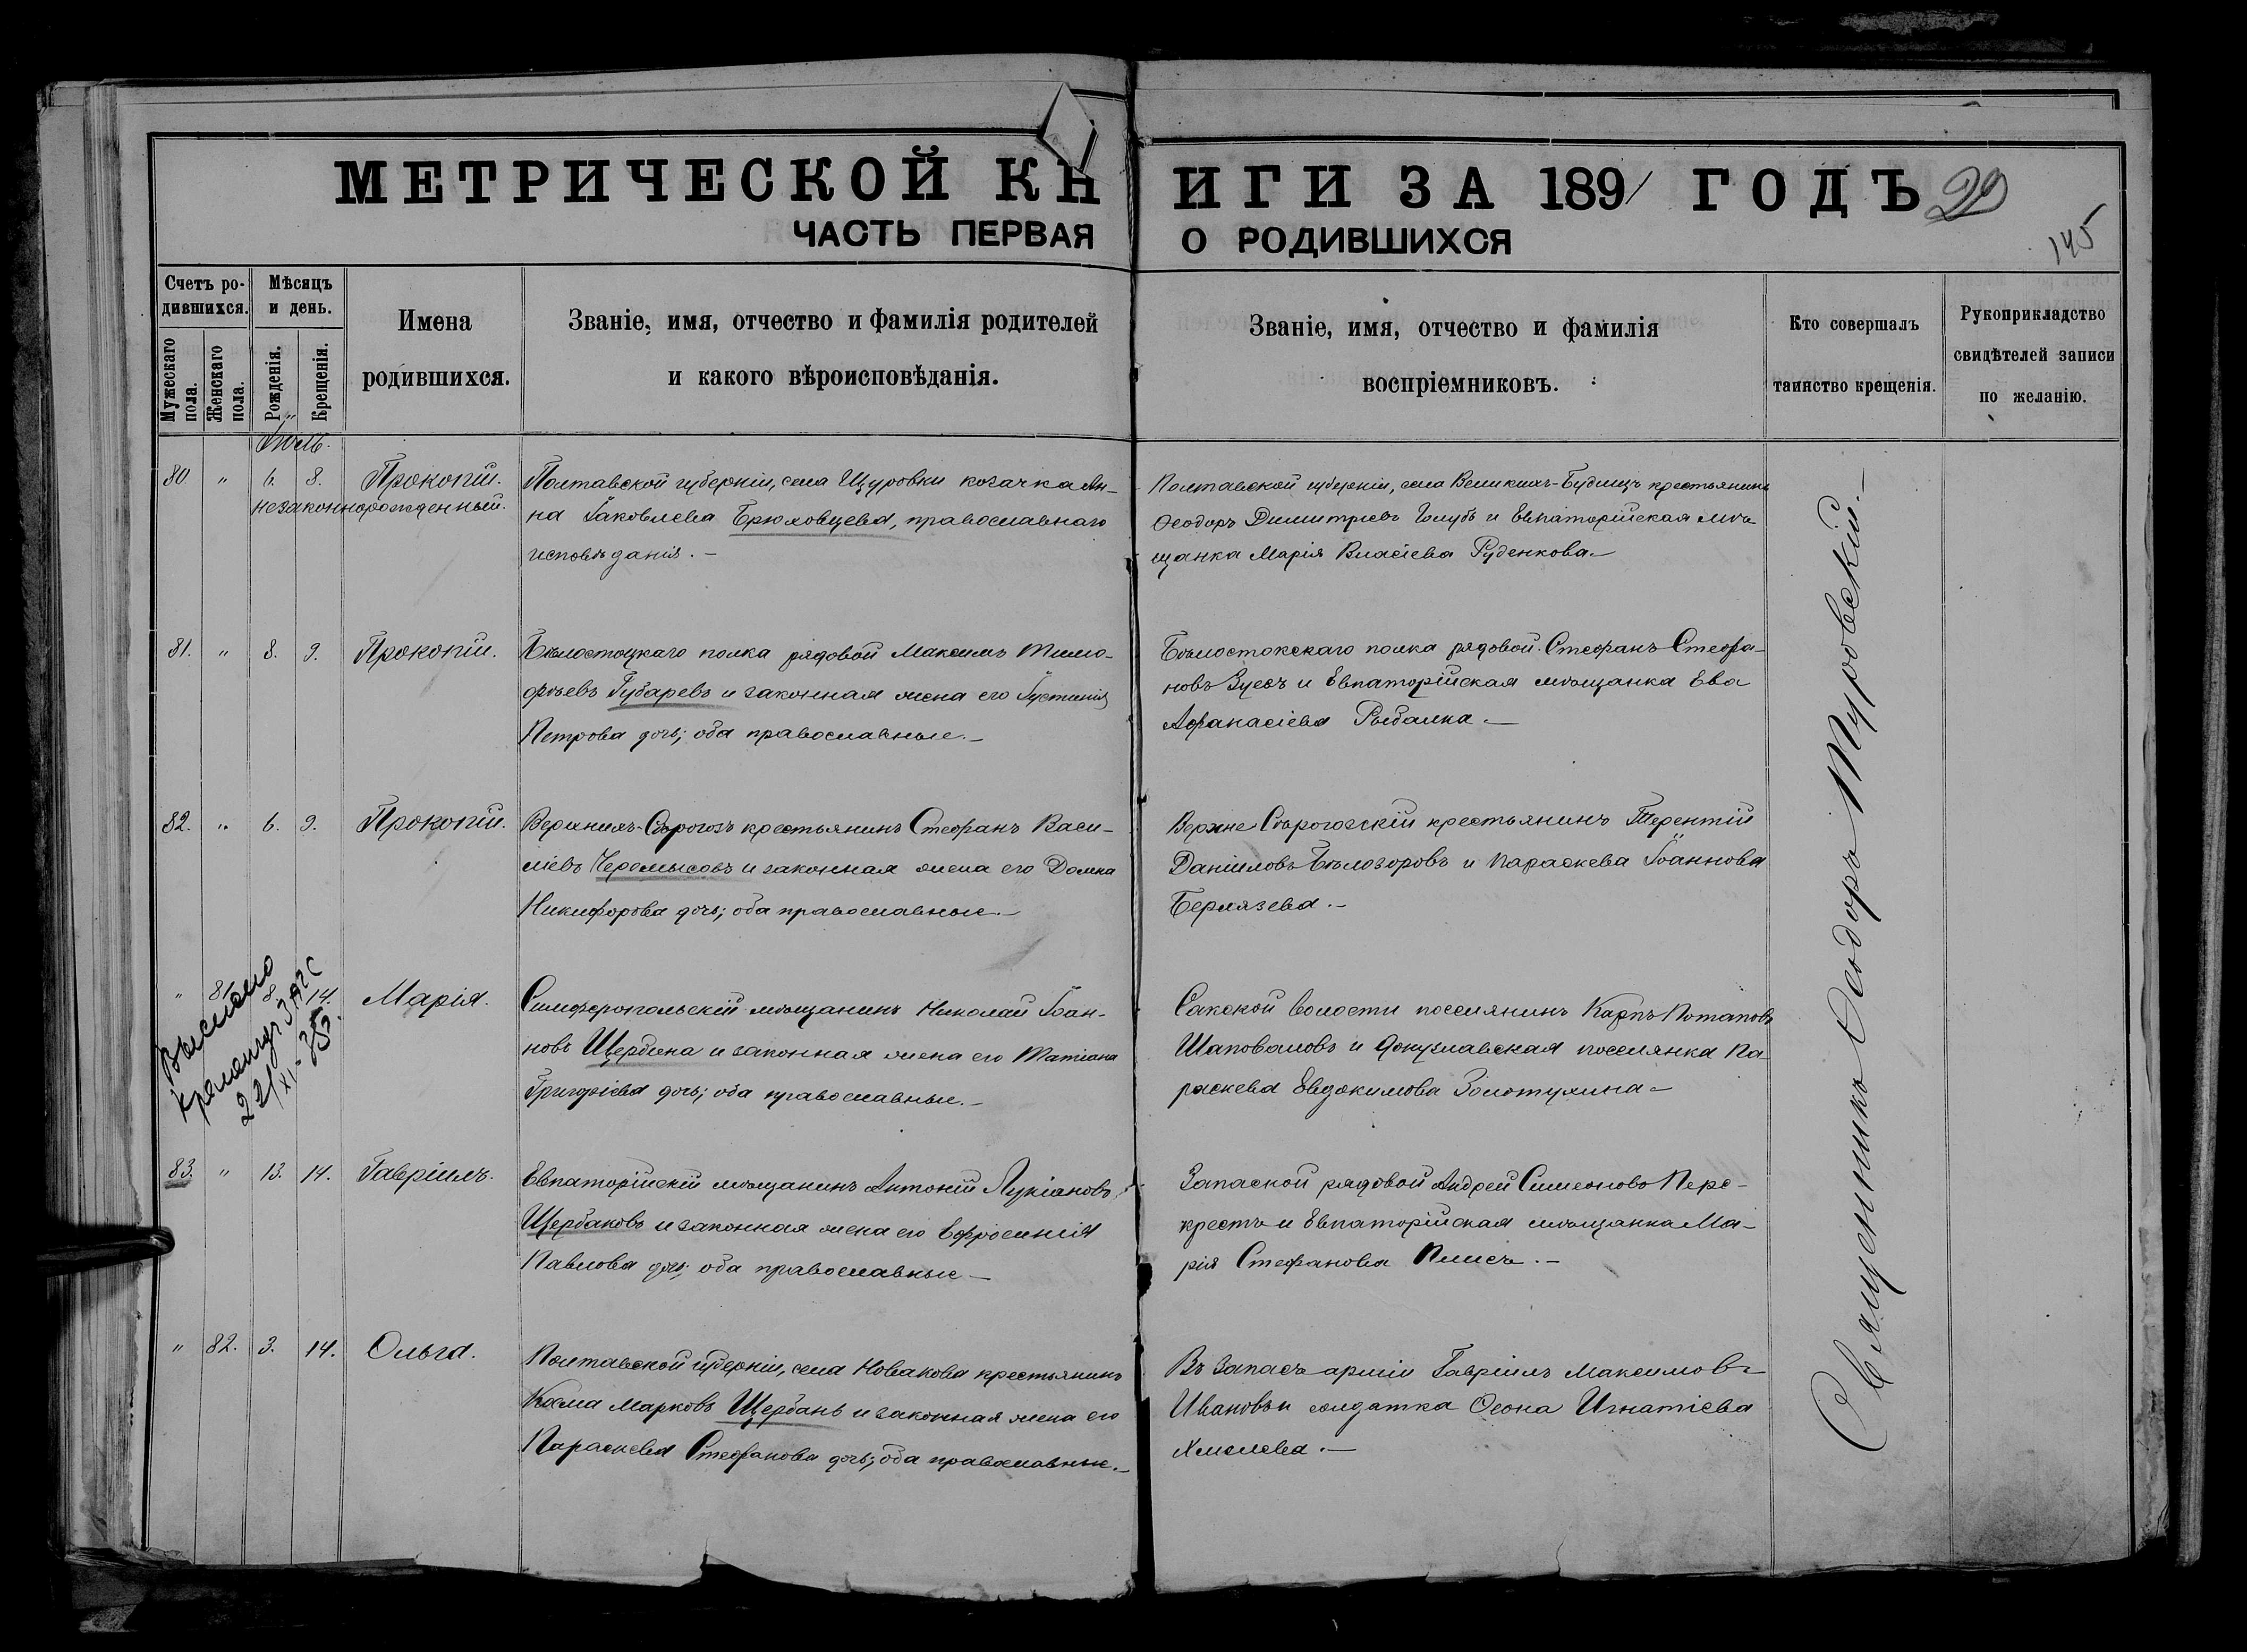 МЕТРИЧЕСКОЙ КН ИГИ ЗА 1891 ГОДЪ 29
ЧАСТЬ ПЕРВАЯ О РОДИВШИХСЯ
145
Счетъ ро-
дившихся.
Мужескаго
пола.
Женскаго
пола.
Мѣсяцъ
и день.
Рожденія.
Крещенія.
Имена
родившихся.
Званіе, имя, отчество и фамилія родителей
и какого вѣроисповѣданія.
Званіе, имя, отчество и фамилія
воспріемниковъ.
Кто совершалъ
таинство крещенія.
Рукоприкладство
свидѣтелей записи
по желанію.
Іюль.
80 " 6. 8. Прокопій.
незаконнорожденный.
Полтавской губерніи, села Щуровки козачка Ан-
на Іаковлева Брюховцева, православнаго
исповѣданія.-
Полтавской губерніи, села Великихъ-Будищъ крестьянинъ
Ѳеодоръ Димитріевъ Голубъ и Евпаторійская мѣ-
щанка Марія Власіева Руденкова-
81. " 8. 9. Прокопій.
Бѣлостоцкаго полка рядовой Максимъ Тимо-
фѣевъ Губаревъ и законная жена его Іустинія
Петрова дочь; оба православные.-
Бѣлостокскаго полка рядовой Стефанъ Стефа-
новъ Зуевъ и Евпаторійская мѣщанка Ева
Афанасіева Рыбалка.-
82. " 6. 9. Прокопій.
Верхнихъ-Сѣрогозъ крестьянинъ Стефанъ Васи-
ліевъ Черемысовъ и законная жена его Домна
Никифорова дочь; оба православные.-
Верхне Сѣрогозскій крестьянинъ Терентій
Даніиловъ Бѣлозоровъ и Параскева Іоаннова
Берлязева.-
" 81. 8. 14. Марія.
Выслано
22/XI-35
Симферопольскій мѣщанинъ Николай Іоан-
новъ Щербина и законная жена его Татіана
Григоріева дочь; оба православные.-
Сакской волости поселянинъ Карпъ Потаповъ
Шаповаловъ и Донузлавская поселянка Па-
раскева Евдокимова Золотухина-
83. " 13. 14. Гавріилъ.
Евпаторійскій мѣщанинъ Антоній Лукіановъ
Щербаковъ и законная жена его Евфросинія
Павлова дочь; оба православные-
Запасной рядовой Андрей Симеоновъ Пере-
крестъ и Евпаторійская мѣщанка Ма-
рія Стефанова Плисъ.-
" 82. 3. 14. Ольга.
Полтавской губерніи, села Новакова крестьянинъ
Косма Марковъ Щербань и законная жена его
Параскева Стефанова дочь; оба православные.-
Въ запасъ арміи Гавріилъ Максимовъ
Ивановъ и солдатка Ѳеона Игнатіева
Хмелева.-
Священникъ Ѳеодоръ Туровскій.-